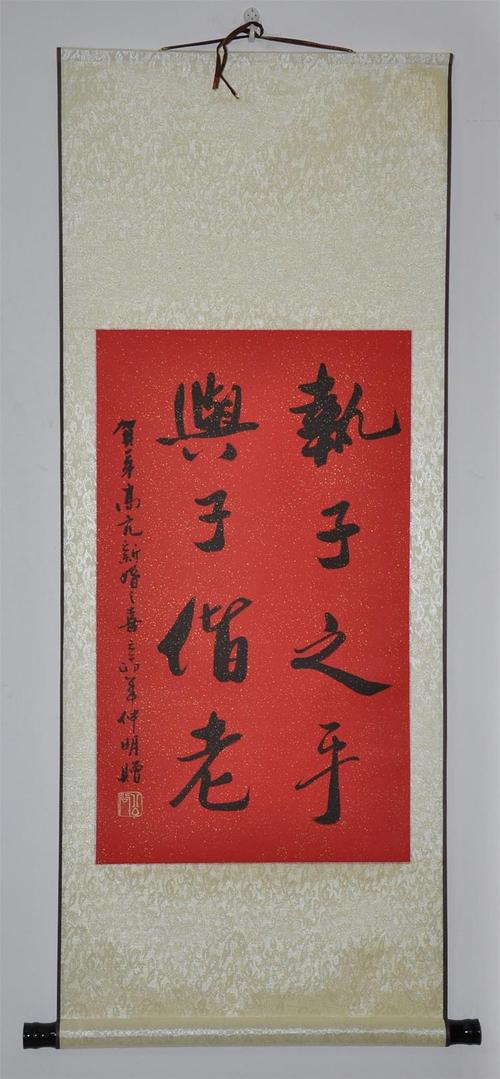 執子之手
與子偕老
賀 高亮新婚之喜 仲明贈